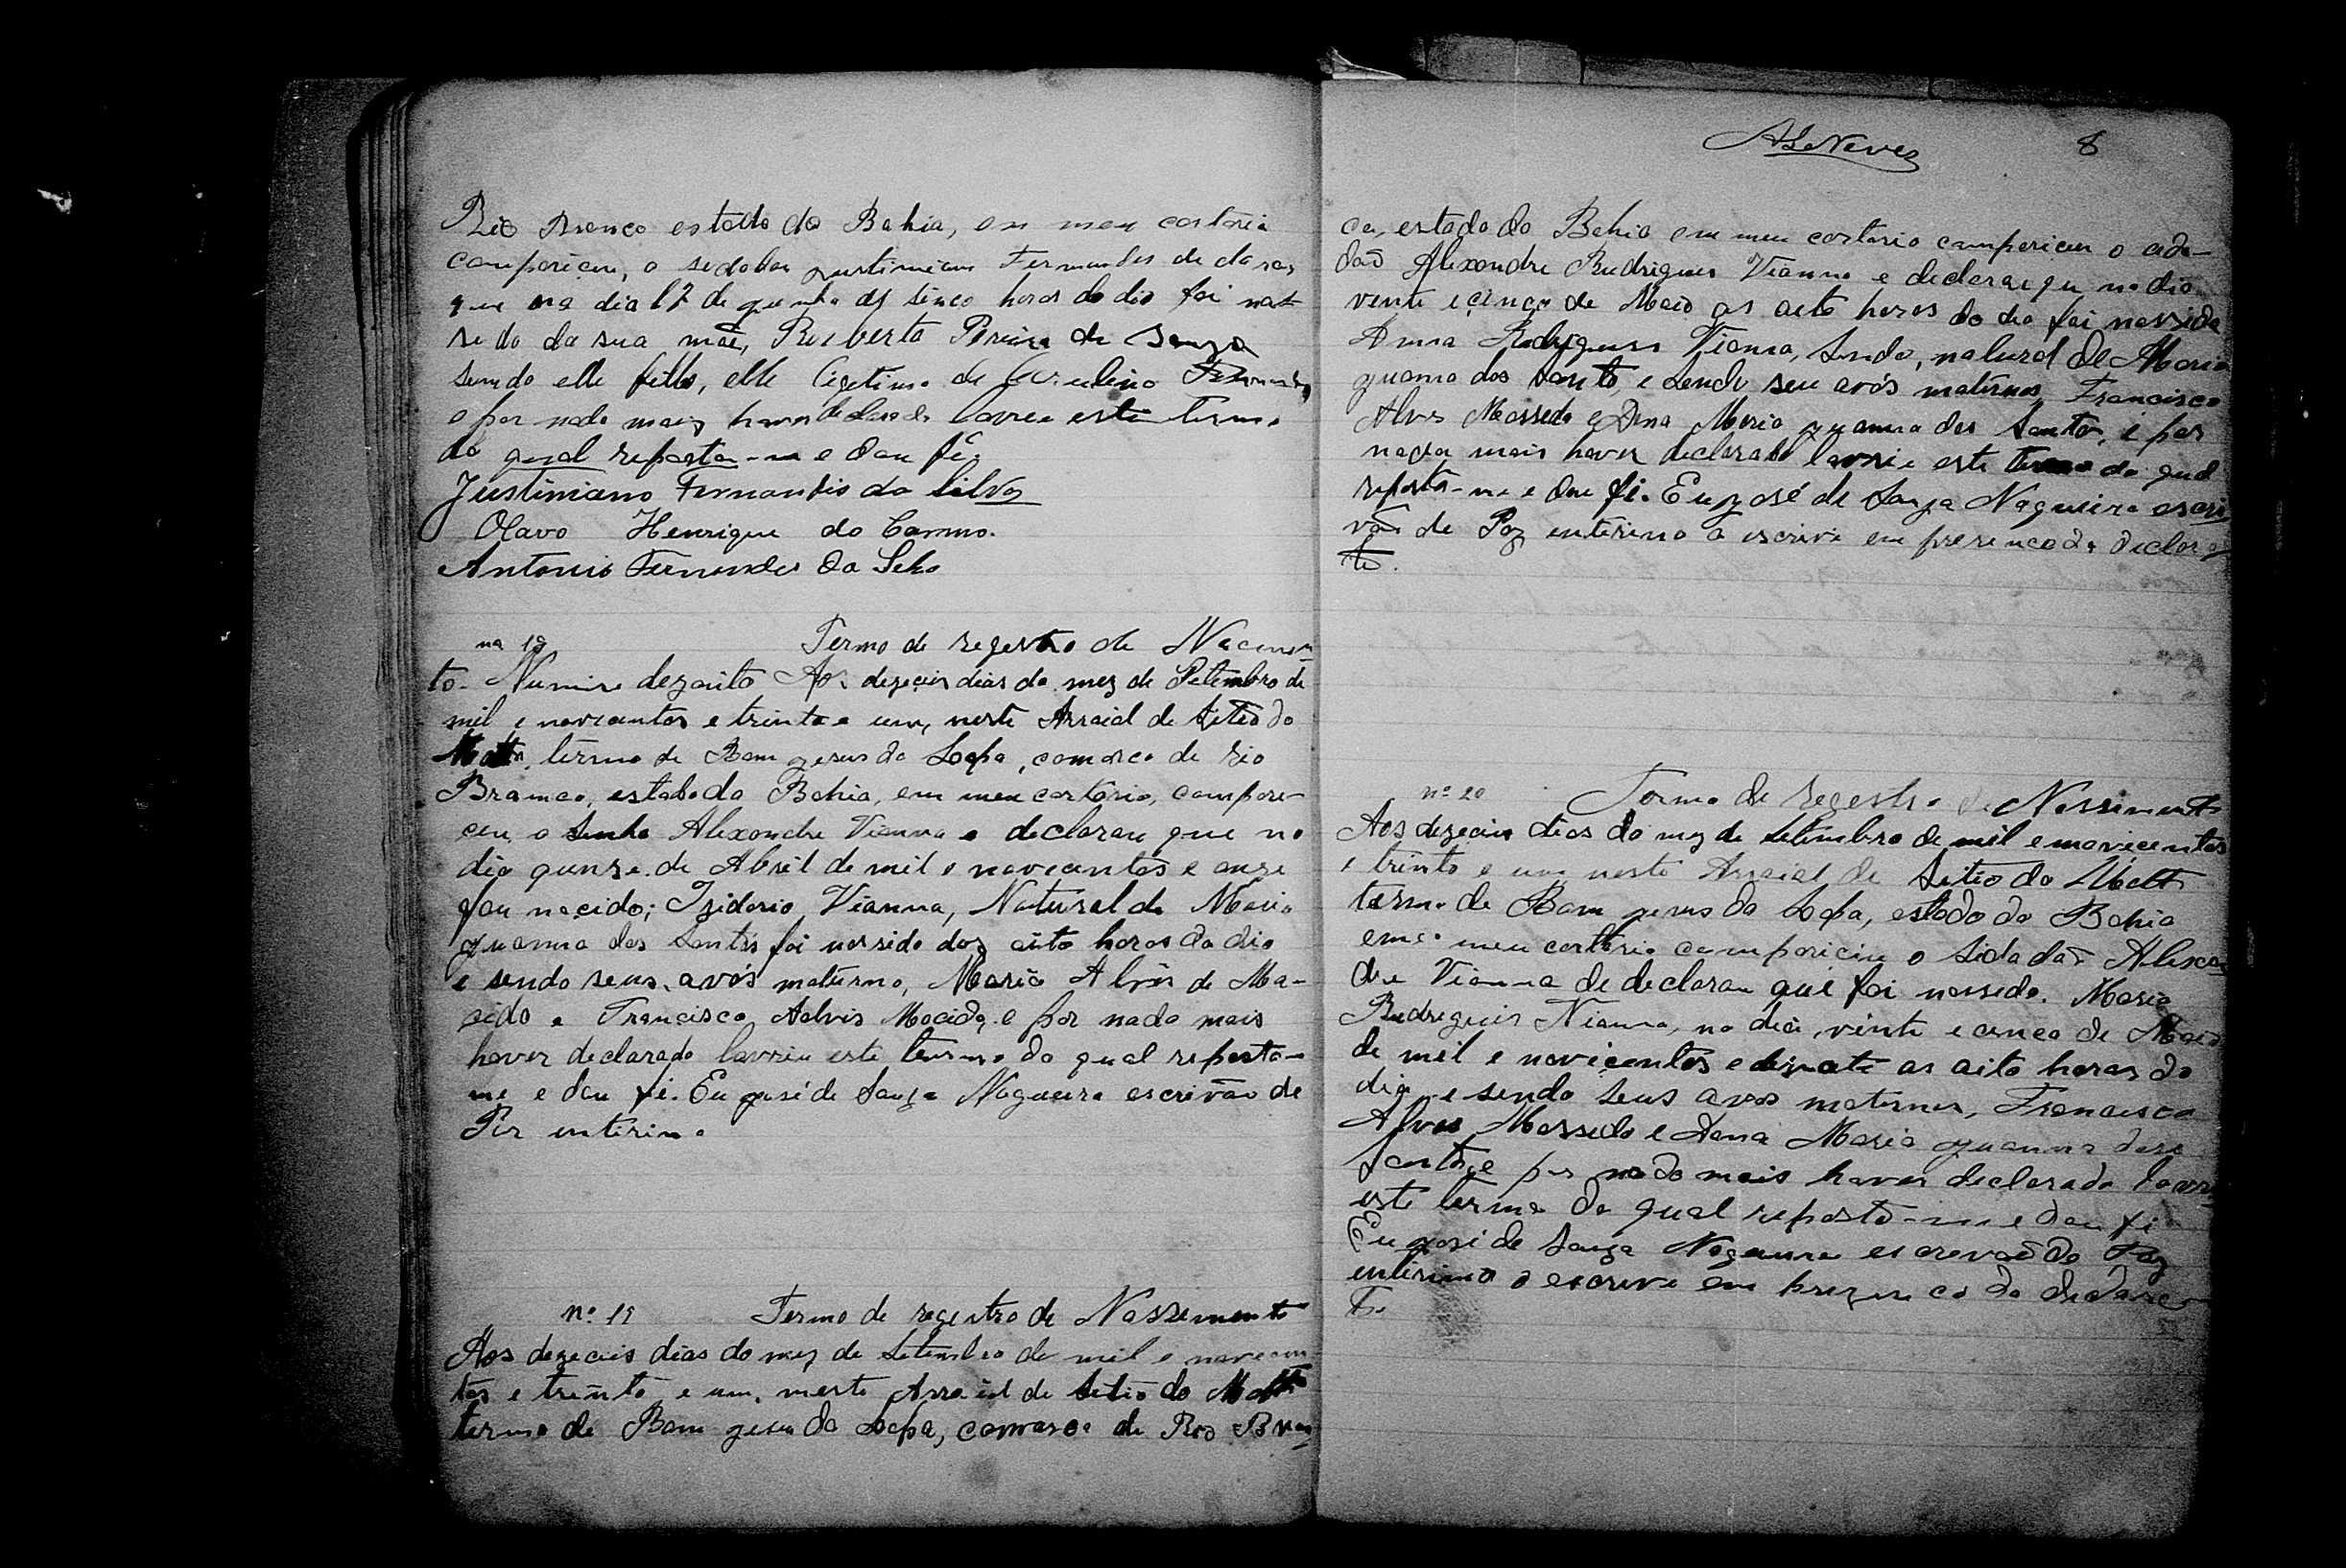 Rio Branco estado da Bahia, em meu cartorio
compariceu, o sidadão Justiniano Fernandes declarou
que no dia 17 de junho as sinco horas do dia foi nas
sido da sua mãe, Ruiberta Pereira de Souza
sendo elle filho, elle legitimo de Fernandes
e por nada mais haver declarado lavrei este termo
do qual reporta-me e dou fé.
Justiniano Fernandis da Silva
Olavo Henrique do Carmo.
Antonio Fernandes da Silva
nº 18 Termo de regestro de Nacimen
to. Numiro dezoito Aos dezeceis dias do mez de Setembro de
mil e novecentos e trinta e um, neste Arraial de Sitio do
Matto, termo de Bom Jesus da Lapa, comarca de Rio
Branco, estado da Bahia, em meu cartorio, compare-
ceu o Senho Alexandre Vianna e declarou que no
dia quinze de Abril de mil e novecentos e onze
foi nacido; Izidorio Vianna, Natural de Maria
Juanna dos Santos foi nassido das oito horas do dia
e sendo seus avós materno, Maria Alvis de Ma-
cido e Francisco Aelvis Macido, e por nada mais
haver declarado lavriu este termo do qual reporta-
me e dou fé. Eu José de Souza Nogueira escrivão de
Paz interino
nº 19 Termo de regestro de Nassemento
Aos dezeceis dias do mez de Setembro de mil e novecen
tos e trinta e um, neste Arraial de Sitio do Matto
termo de Bom Jesus da Lapa, comarca de Rio Bran
ALNeves 8
co, estado da Bahia em meu cartorio compariceu o cida-
dão Alexandre Rudrigues Vianna e declarou que no dia
vente e cinco de Maio as oito horas do dia foi nassida
Anna Rodrigues Vianna, sendo, natural de Maria
Juana dos Santos, e sendo seu avós maternos, Francisco
Alves Massedo e Dona Maria Juanna dos Santos, e por
nada mais haver declarado lavrei este termo do qual
reporta-me e dou fé. Eu José de Souza Nogueira escri
vão de Paz enterino o escrivi em presenca do declaran
te.
nº 20 Termo de Regestro de Nassimento
Aos dezeceis dias do mez de Setembro de mil e novicentos
e trinta e um neste Arraial de Sitio do Matto
termo de Bom Jesus da Lapa, estado da Bahia
em meu cartorio compariciu o Sidadão Alexan
dre Vianna de declarou que foi nasseda. Maria
Rudreguis Vianna, no dia, vinte e cinco de Maio
de mil e novicentos e dezoito as oito horas do
dia e sendo seus avos maternos, Francisco
Alves Massedo e Dona Maria Juanna dos
Santos, e por nada mais haver declarado lavrei
este termo do qual reposta-me e dou fé
Eu José de Souza Nogueira escrevão de Paz
enterino o escrevi em prezenca do declaran
te.